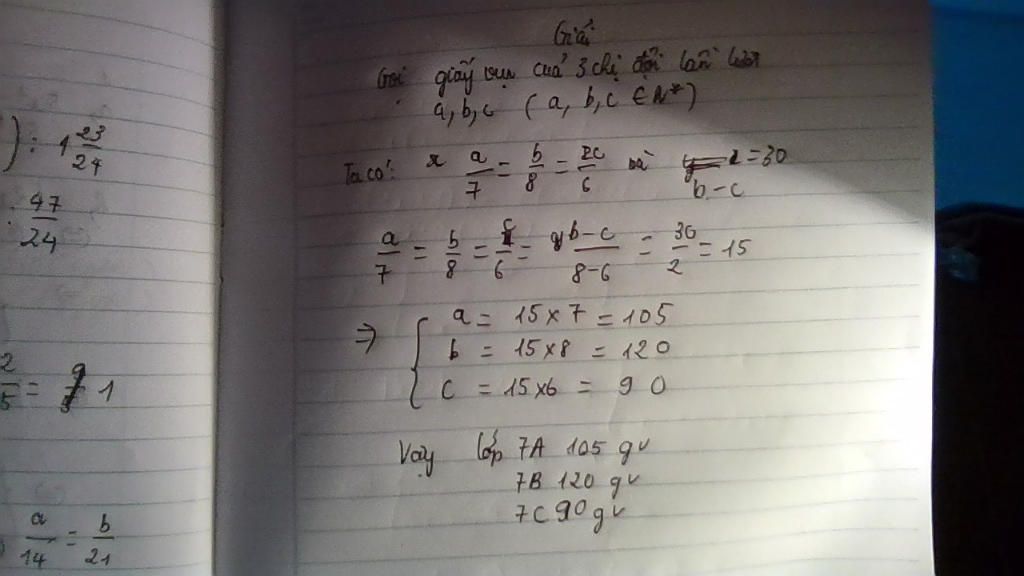 ) : 1 23/24
: 47/24
2/5 = 1
a/14 = b/21
Giải
Gọi giấy vụn của 3 chi đội lần lượt
a, b, c ( a, b, c ∈ N*)
Ta có: a/7 = b/8 = c/6 và b - c = 30
a/7 = b/8 = c/6 = b-c/8-6 = 30/2 = 15
⇒ { a = 15 x 7 = 105
b = 15 x 8 = 120
c = 15 x 6 = 90
Vậy lớp 7A 105 gv
7B 120 gv
7C 90 gv